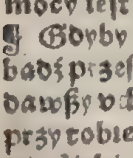 mocy ieſt
J Gdyby
bądź przeſ
dawſzy v
przy tobie